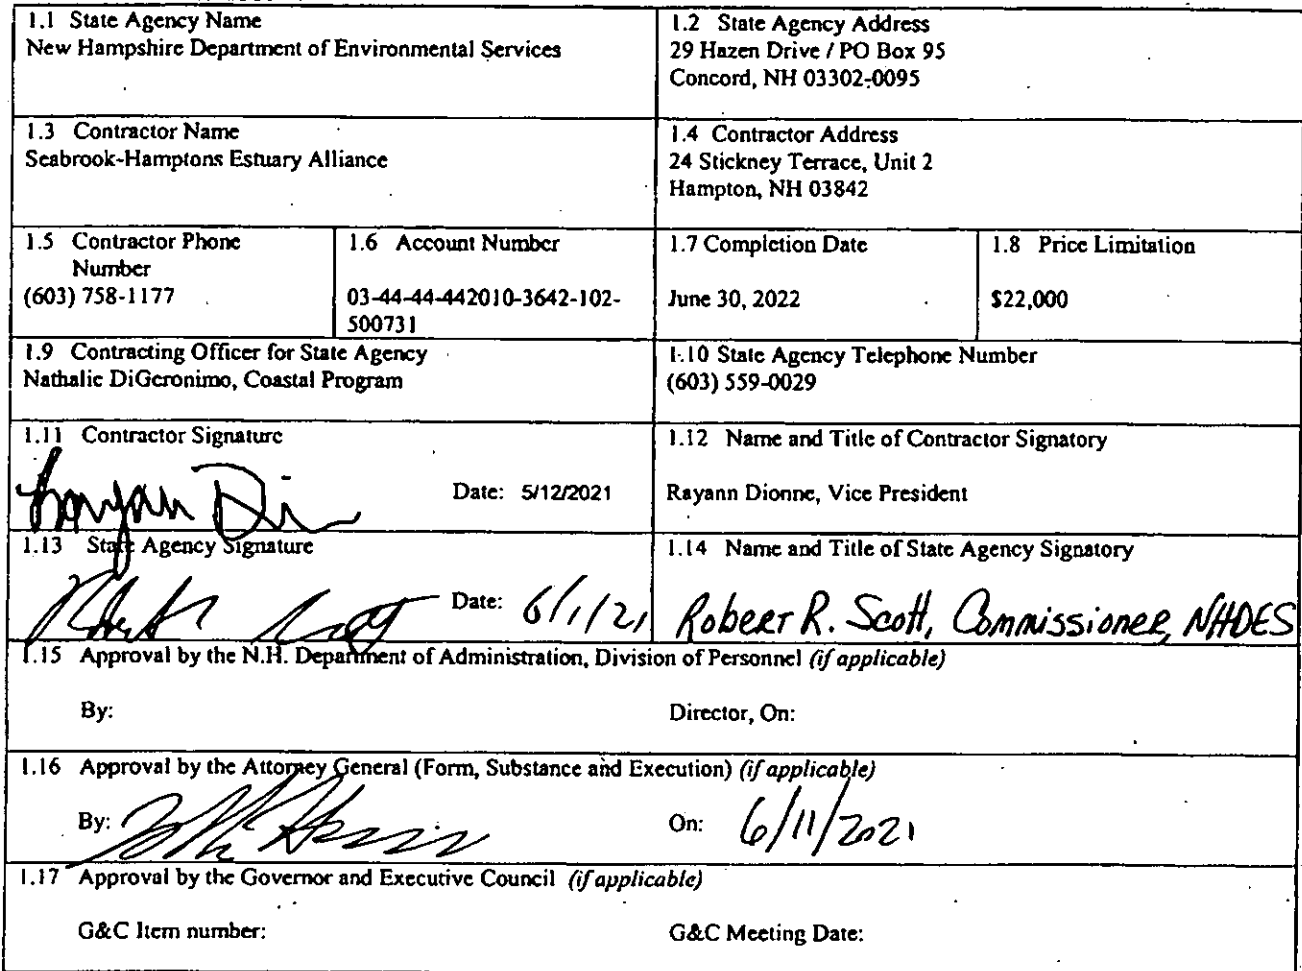 1.1 State Agency Name
New Hampshire Department of Environmental Services
1.2 State Agency Address
29 Hazen Drive / PO Box 95
Concord, NH 03302-0095
1.3 Contractor Name
Seabrook-Hamptons Estuary Alliance
1.4 Contractor Address
24 Stickney Terrace, Unit 2
Hampton, NH 03842
1.5 Contractor Phone
Number
(603) 758-1177
1.6 Account Number
03-44-44-442010-3642-102-
500731
1.7 Completion Date
June 30, 2022
1.8 Price Limitation
$22,000
1.9 Contracting Officer for State Agency
Nathalie DiGeronimo, Coastal Program
1.10 State Agency Telephone Number
(603) 559-0029
1.11 Contractor Signature
Date: 5/12/2021
1.12 Name and Title of Contractor Signatory
Rayann Dionne, Vice President
1.13 State Agency Signature
Date: 6/1/21
1.14 Name and Title of State Agency Signatory
Robert R. Scott, Commissioner, NHDES
1.15 Approval by the N.H. Department of Administration, Division of Personnel (if applicable)
By:
Director, On:
1.16 Approval by the Attorney General (Form, Substance and Execution) (if applicable)
By:
On: 6/11/2021
1.17 Approval by the Governor and Executive Council (if applicable)
G&C Item number:
G&C Meeting Date: